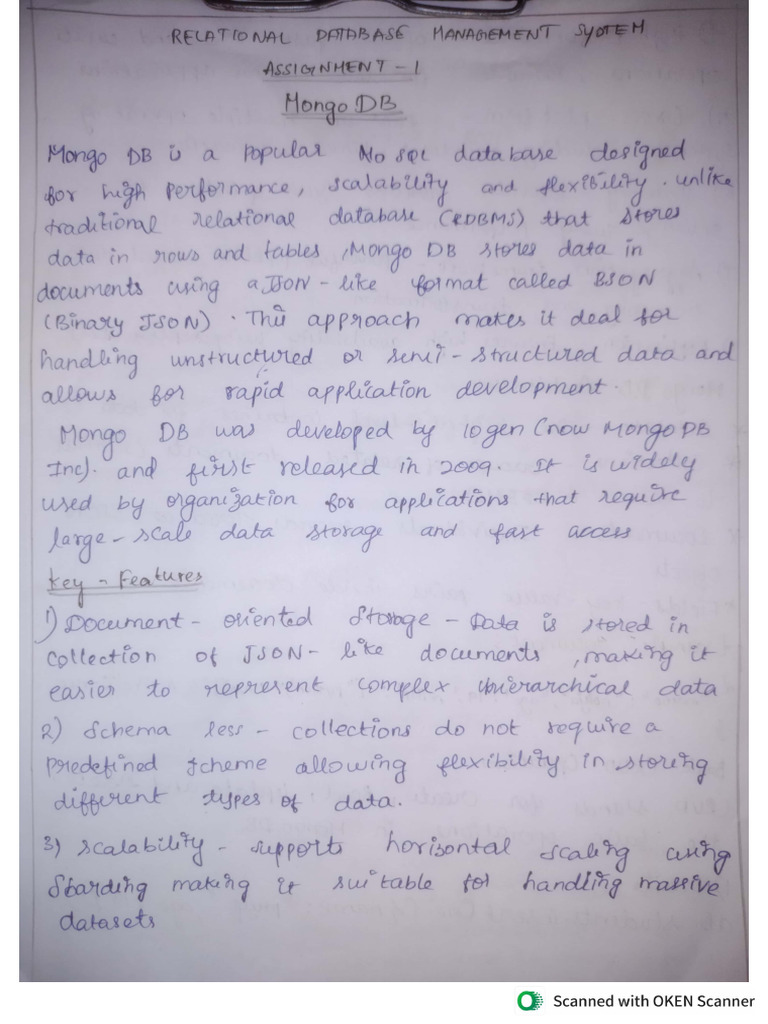 RELATIONAL DATABASE MANAGEMENT SYSTEM
ASSIGNMENT - 1
Mongo DB
Mongo DB is a popular No SQL database designed
for high performance, scalability and flexibility. unlike
traditional relational database (RDBMS) that stores
data in rows and tables, Mongo DB stores data in
documents using a JSON - like format called BSON
(Binary JSON). This approach makes it deal for
handling unstructured or semi - structured data and
allows for rapid application development.
Mongo DB was developed by 10gen (now Mongo DB
Inc). and first released in 2009. It is widely
used by organization for applications that require
large - scale data storage and fast access
Key - Features
1) Document - oriented Storage - Data is stored in
collection of JSON - like documents, making it
easier to represent complex hierarchical data
2) Schema less - collections do not require a
predefined scheme allowing flexibility in storing
different types of data.
3) Scalability - supports horisontal scaling using
Sharding making it suitable for handling massive
datasets
Scanned with OKEN Scanner